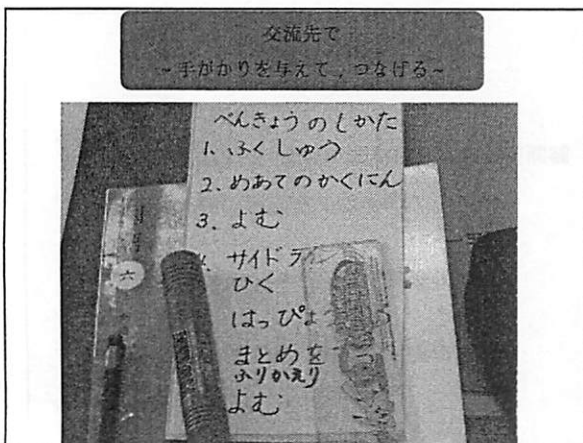 交流先で
~手がかりを与えて，つなげる~
べんきょうのしかた
1. ふくしゅう
2. めあてのかくにん
3. よむ
4. サイドラ
ひく
はっぴょ
まとめを
ふりかえり
よむ
六